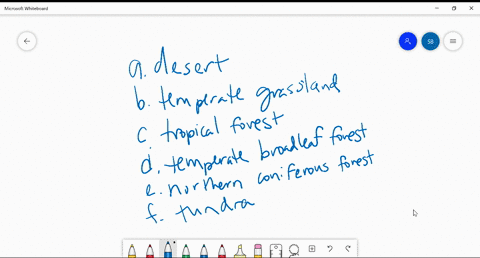 Microsoft Whiteboard
SB
a. desert
b. temperate grassland
c. tropical forest
d. temperate broadleaf forest
e. northern coniferous forest
f. tundra